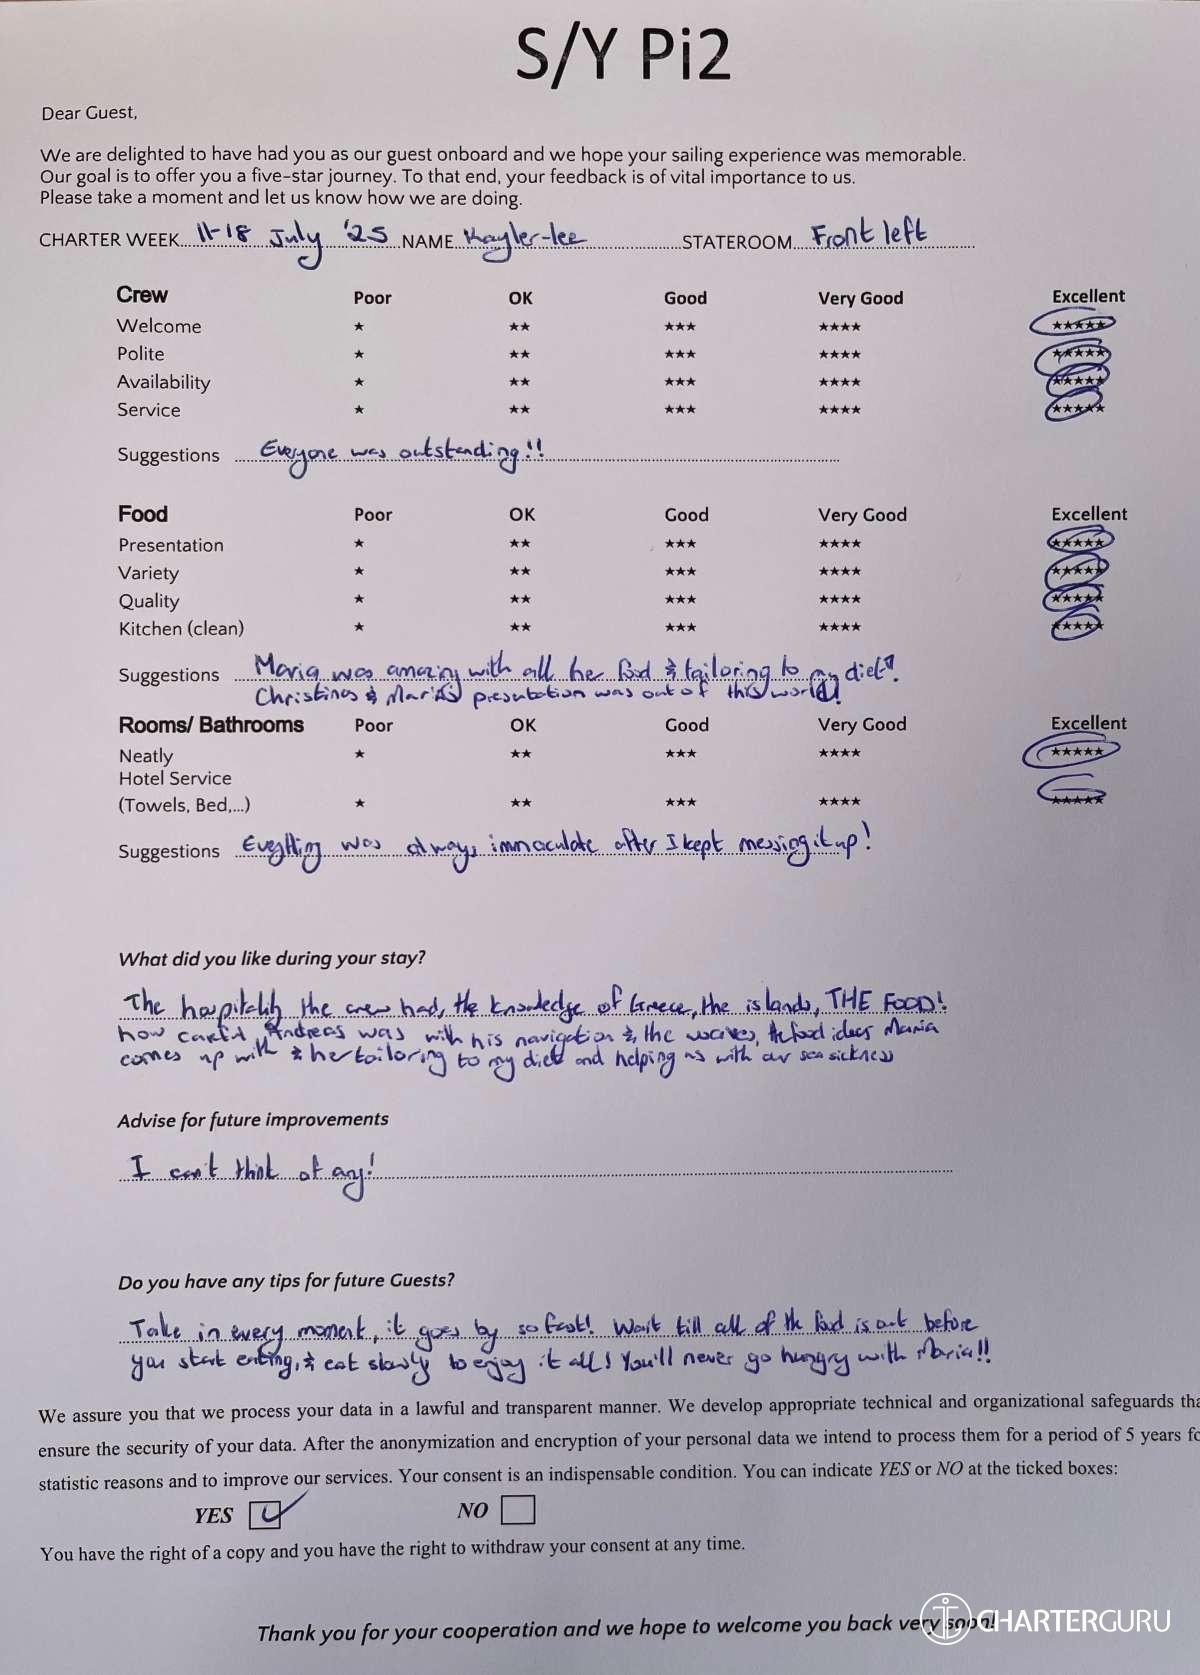 S/Y Pi2
Dear Guest,
We are delighted to have had you as our guest onboard and we hope your sailing experience was memorable.
Our goal is to offer you a five-star journey. To that end, your feedback is of vital importance to us.
Please take a moment and let us know how we are doing.
CHARTER WEEK 11-18 July '25 NAME Kayler-lee STATEROOM Front left
Crew Poor OK Good Very Good Excellent
Welcome ★ ★★ ★★★ ★★★★ ★★★★★
Polite ★ ★★ ★★★ ★★★★ ★★★★★
Availability ★ ★★ ★★★ ★★★★ ★★★★★
Service ★ ★★ ★★★ ★★★★ ★★★★★
Suggestions Everyone was outstanding!!
Food Poor OK Good Very Good Excellent
Presentation ★ ★★ ★★★ ★★★★ ★★★★★
Variety ★ ★★ ★★★ ★★★★ ★★★★★
Quality ★ ★★ ★★★ ★★★★ ★★★★★
Kitchen (clean) ★ ★★ ★★★ ★★★★ ★★★★★
Suggestions Maria was amazing with all her food & tailoring to my diet!
Christinas & Maria's presentation was out of this world!
Rooms/ Bathrooms Poor OK Good Very Good Excellent
Neatly ★ ★★ ★★★ ★★★★ ★★★★★
Hotel Service
(Towels, Bed,...) ★ ★★ ★★★ ★★★★ ★★★★★
Suggestions Everything was always immaculate after I kept messing it up!
What did you like during your stay?
The hospitality the crew had, the knowledge of Greece, the islands, THE FOOD!
how careful Andreas was with his navigation & the waves, the food ideas Maria
comes up with & her tailoring to my diet and helping us with our sea sickness
Advise for future improvements
I can't think of any!
Do you have any tips for future Guests?
Take in every moment, it goes by so fast! Wait till all of the food is out before
you start eating, & eat slowly to enjoy it all! You'll never go hungry with Maria!!
We assure you that we process your data in a lawful and transparent manner. We develop appropriate technical and organizational safeguards tha
ensure the security of your data. After the anonymization and encryption of your personal data we intend to process them for a period of 5 years fo
statistic reasons and to improve our services. Your consent is an indispensable condition. You can indicate YES or NO at the ticked boxes:
YES NO
You have the right of a copy and you have the right to withdraw your consent at any time.
Thank you for your cooperation and we hope to welcome you back very soon!
CHARTERGURU